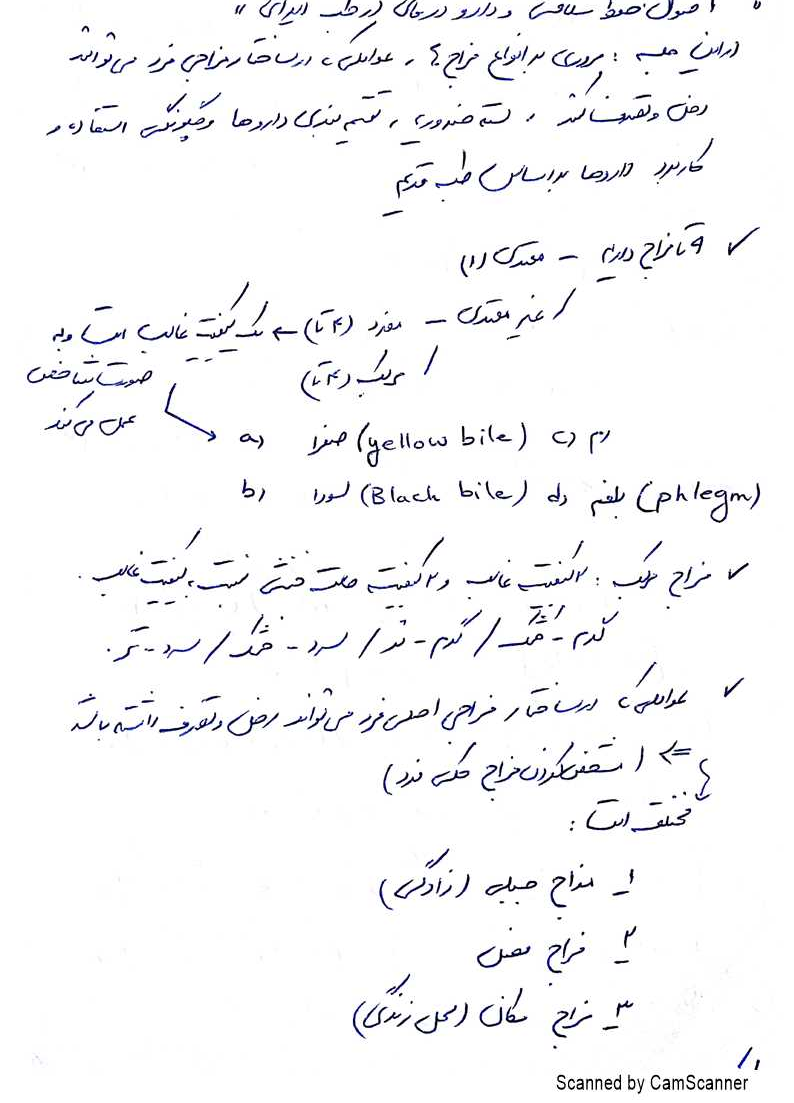 اصول حفظ سلامتی و دارو درمانی در طب ایرانی "
در این جلسه : مروری بر انواع مزاج ها ، عواملی که در ساختار مزاجی فرد می‌توانند
دخل و تصرف کند ، سته ضروریه ، تقسیم بندی داروها و چگونگی استفاده و
کاربرد داروها بر اساس طب قدیم
✓ ۹ تا مزاج داریم – معتدل (۱)
/ غیر معتدل – مفرد (۴ تا) ← یک کیفیت غالب است و به
صورت شاخص
/ مرکب (۴ تا)
عمل می کند
a) صفرا (yellow bile) c) دم
b) سودا (Black bile) d) بلغم (phlegm)
✓ مزاج مرکب : ۲ کیفیت غالب و ۲ کیفیت حالت خنثی نسبت به کیفیت غالب .
گرم - خشک / گرم - تر / سرد - خشک / سرد - تر .
✓ عواملی که در ساختار مزاجی اصلی فرد می‌تواند دخل و تصرف داشته باشد
=> (مشخص کردن مزاج کلی فرد)
مختلف است :
۱_ مزاج جبلی (زادگی)
۲_ مزاج فصل
۳_ مزاج مکان (محل زندگی)
۱/
Scanned by CamScanner